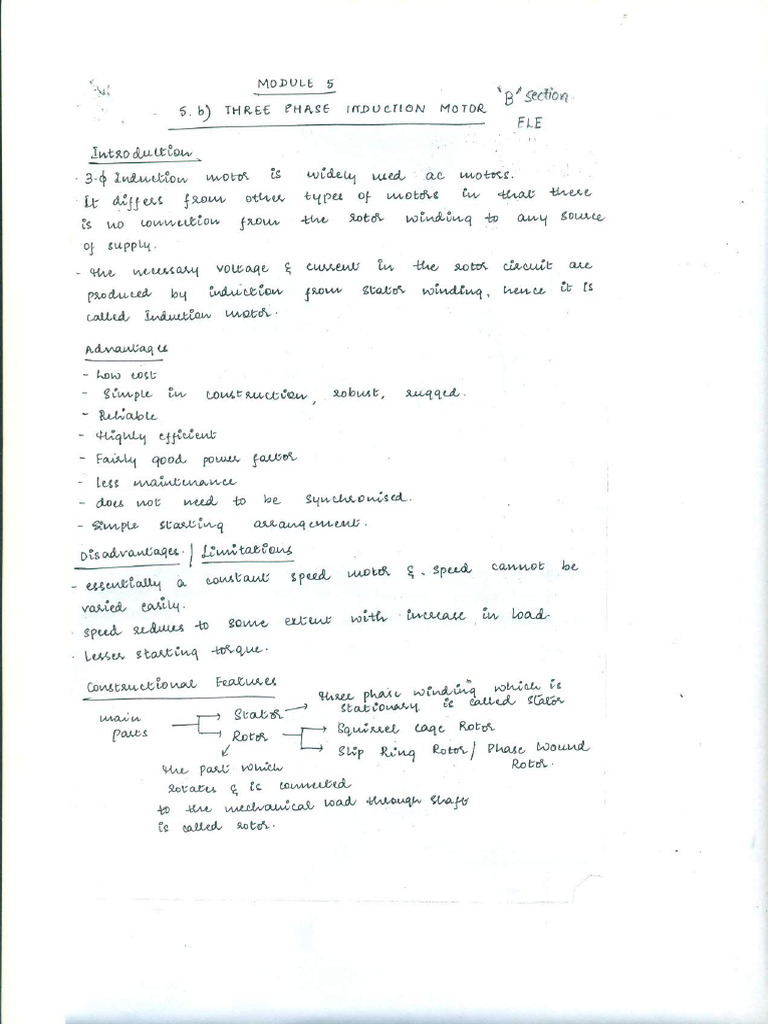 MODULE 5
"B" section
5. b) THREE PHASE INDUCTION MOTOR
FLE
Introduction
· 3-ϕ Induction motor is widely used ac motors.
· It differs from other types of motors in that there
is no connection from the rotor winding to any source
of supply.
- the necessary voltage & current in the rotor circuit are
produced by induction from stator winding, hence it is
called Induction motor.
Advantages
- Low cost
- Simple in construction, robust, rugged.
- Reliable
- Highly efficient
- Fairly good power factor
- less maintenance
- does not need to be synchronised.
- Simple starting arrangement.
Disadvantages / Limitations
- essentially a constant speed motor & speed cannot be
varied easily.
· speed reduces to some extent with increase in load.
· Lesser starting torque.
Constructional Features
three phase winding which is
stationary is called stator
main
parts
Stator
Rotor
Squirrel cage Rotor
Slip Ring Rotor / Phase Wound
Rotor.
the part which
rotates & is connected
to the mechanical load through shaft
is called rotor.